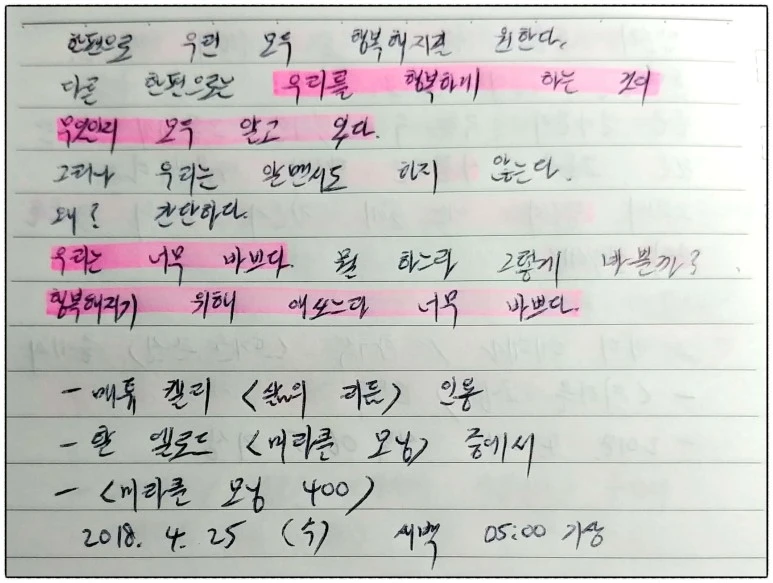 한편으로 우린 모두 행복해지길 원한다.
다른 한편으로는 우리를 행복하게 하는 것이
무엇인지 모두 알고 있다.
그러나 우리는 알면서도 하지 않는다.
왜? 간단하다.
우리는 너무 바쁘다. 뭘 하느라 그렇게 바쁠까?
행복해지기 위해 애쓰느라 너무 바쁘다.
- 매튜 켈리 <삶의 리듬> 인용
- 할 엘로드 <미라클 모닝> 중에서
- <미라클 모닝 400>
2018. 4. 25 (수) 새벽 05:00 기상